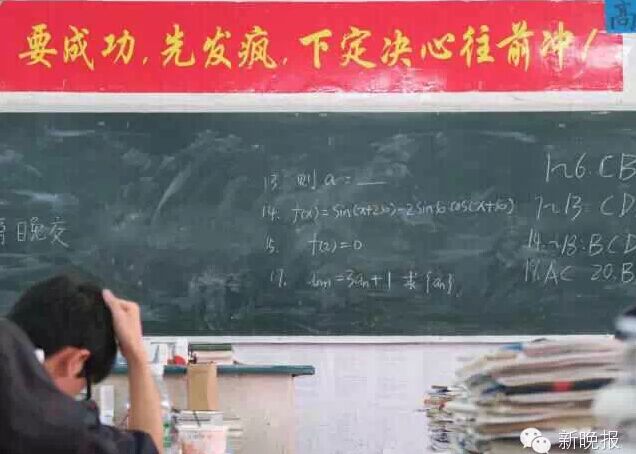 高
要成功,先发疯,下定决心往前冲!
13. 则 a = __
14. f(x)=sin(x+2φ)-2sinφcos(x+φ)
15. f(2)=0
17. an+1=3an+1 求{an}.
日晚交
1~6. CB
7~13: CD
14~18: BCD
19. AC 20. B
新晚报